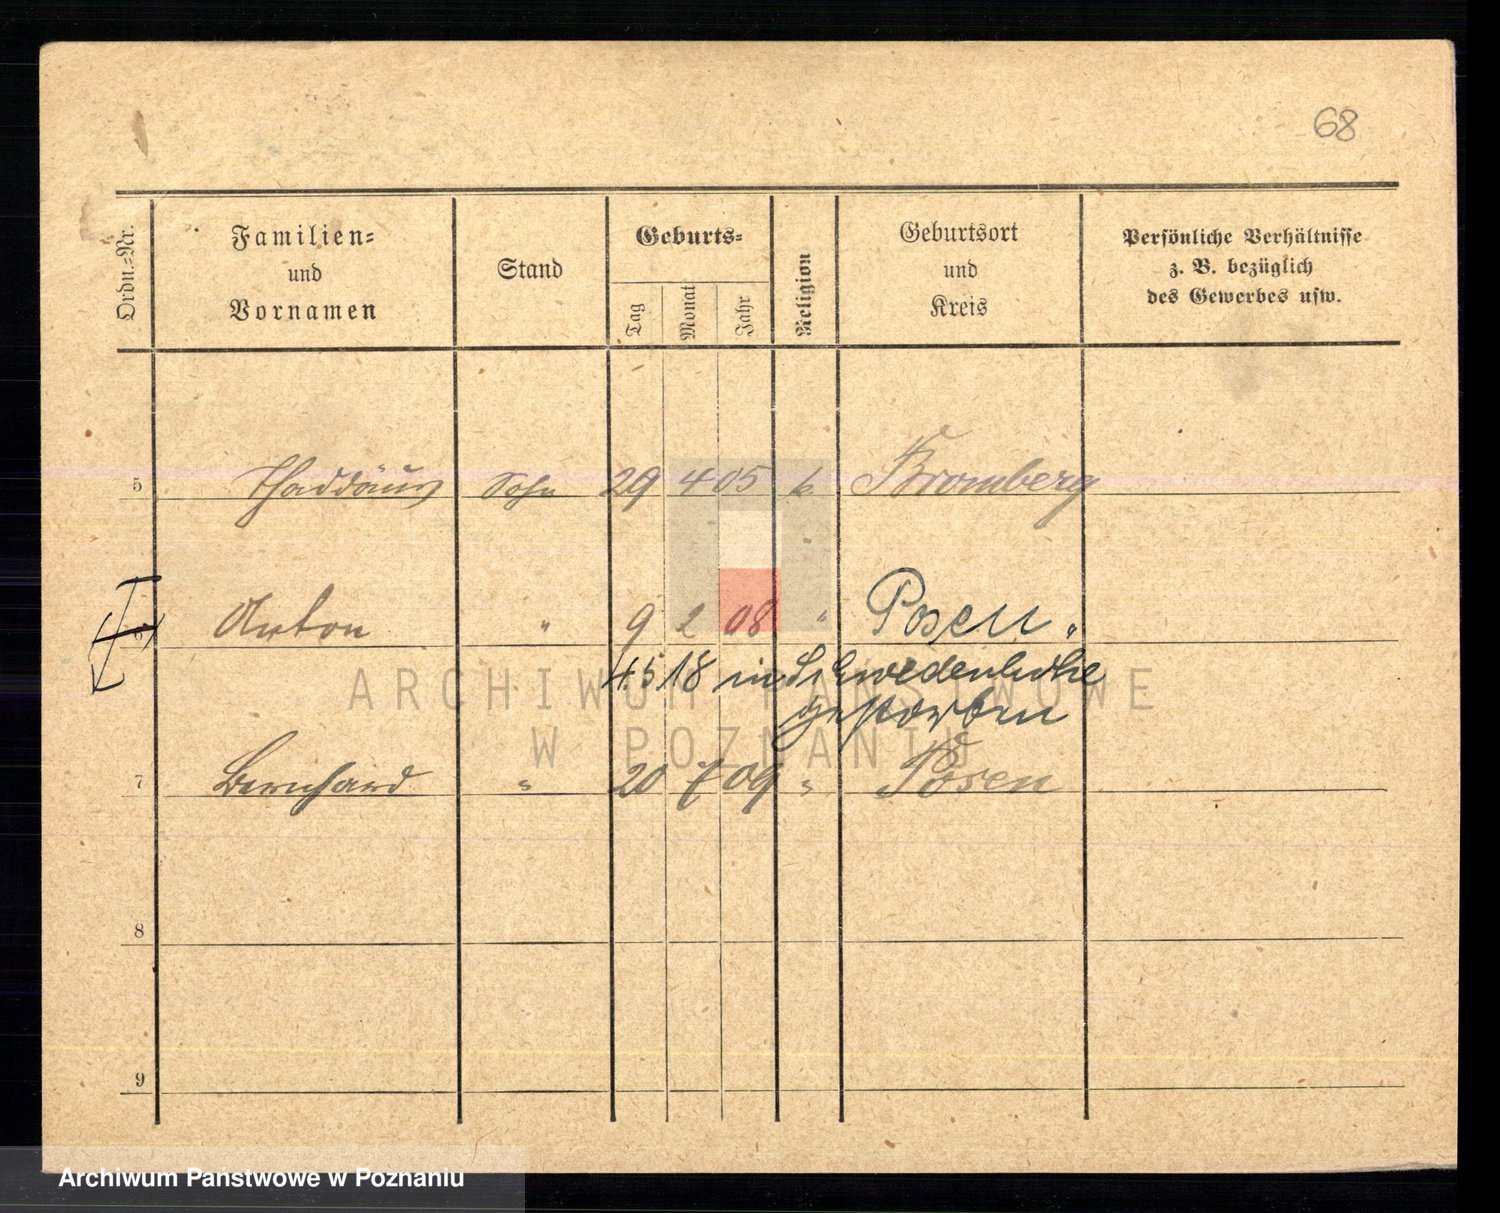 68
Ordn.-Nr.
Familien-
und
Vornamen
Stand
Geburts-
Tag
Monat
Jahr
Religion
Geburtsort
und
Kreis
Persönliche Verhältnisse
z. B. bezüglich
des Gewerbes usw.
5 Thaddäus Sohn 29 4 05 k. Bromberg
6 Anton " 9 2 08 " Posen "
4. 5 18 in
gestorben
7 Bernhard " 20 7 09 " Posen
8
9
ARCHIWUM PAŃSTWOWE
W POZNANIU
Archiwum Państwowe w Poznaniu